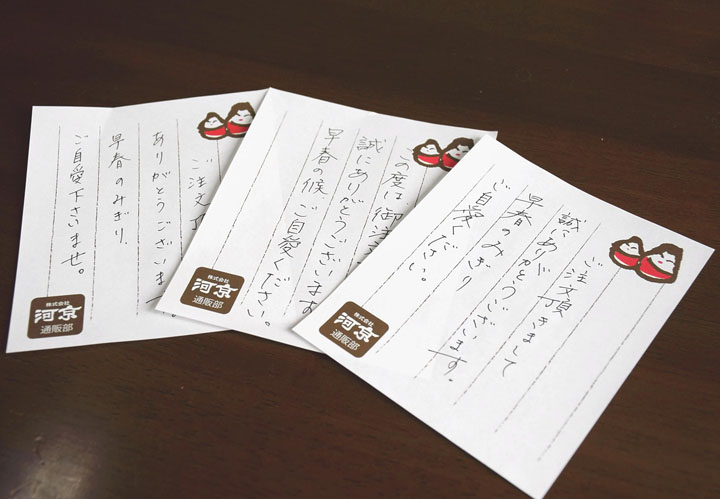 ご注文頂
ありがとうございます。
早春のみぎり、
ご自愛下さいませ。
株式会社
河京
通販部
この度は御注文
誠にありがとうございます
早春の候、ご自愛ください。
株式会社
河京
通販部
ご注文頂きまして
誠にありがとうございます。
早春のみぎり
ご自愛ください。
株式会社
河京
通販部